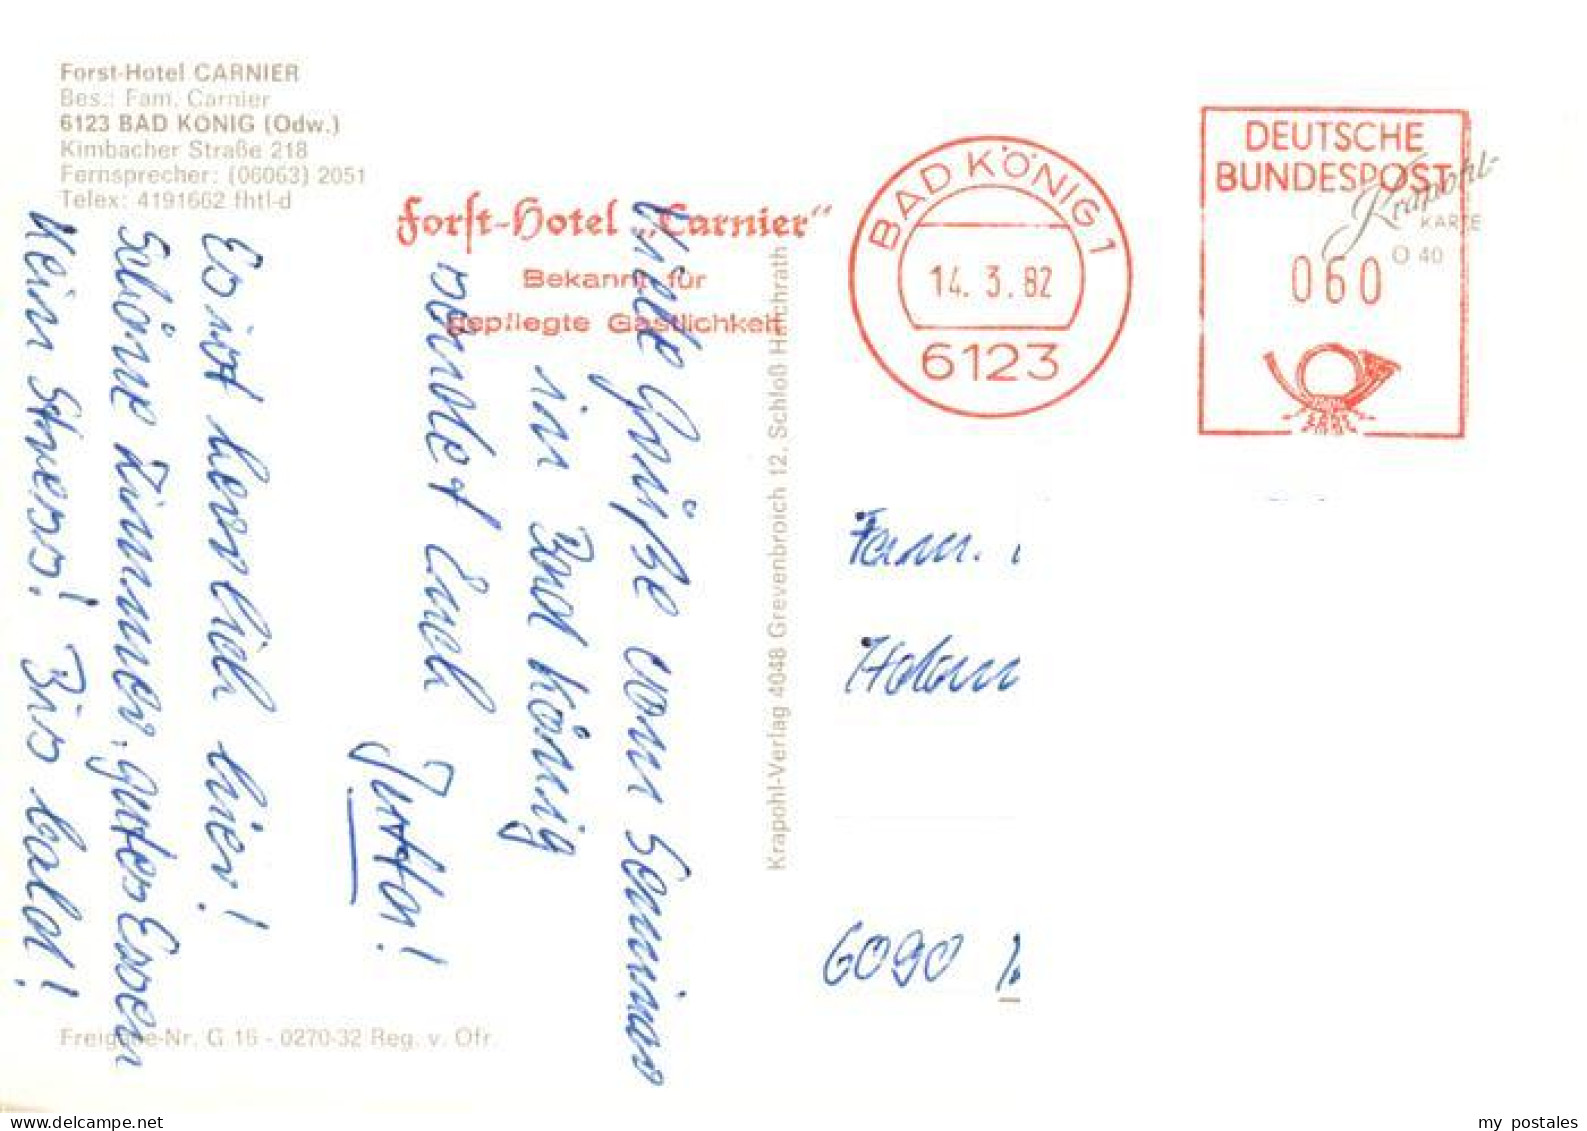 Forst-Hotel CARNIER
Bes.: Fam. Carnier
6123 BAD KÖNIG (Odw.)
Kimbacher Straße 218
Fernsprecher: (06063) 2051
Telex: 4191662 fhtl-d
Forst-Hotel „Carnier“
Bekannt für
gepflegte Gastlichkeit
BAD KÖNIG 1
14. 3. 82
6123
DEUTSCHE
BUNDESPOST
060
Krapohl-
KARTE
O 40
Viele Grüße vom Seminar
in Bad König
sendet Euch
Jutta!
Es ist herrlich hier!
Schöne Zimmer, gutes Essen
Kein Stress! Bis bald!
Krapohl-Verlag 4048 Grevenbroich 12, Schloß Hülchrath
Fam.
6090
Freigabe-Nr. G 16 - 0270-32 Reg. v. Ofr.
my postales